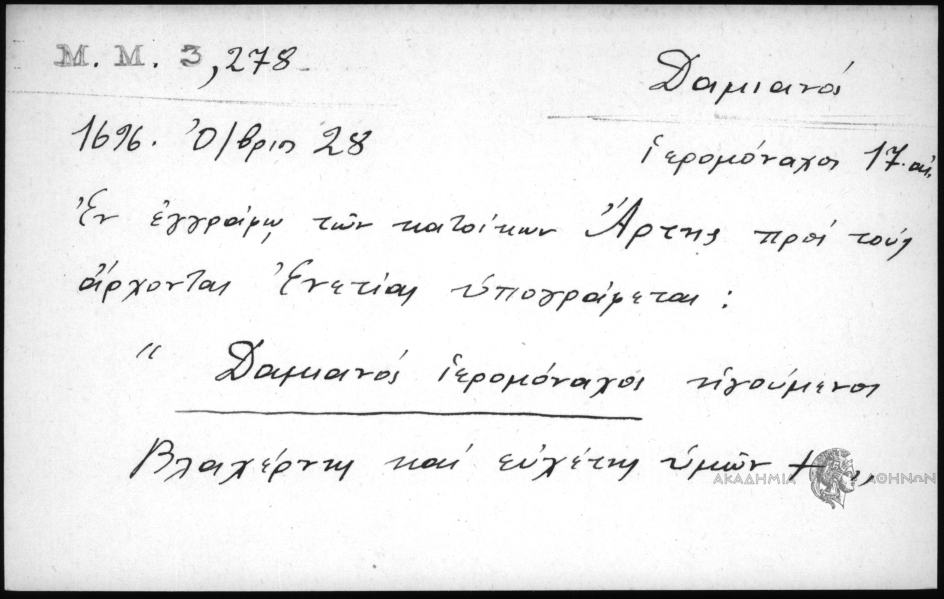 M. M. 3,278
Δαμιανός
1696. Ὀ/βριος 28
ἱερομόναχος 17. αἰ.
Ἐν ἐγγράφῳ τῶν κατοίκων Ἄρτης πρός τούς
ἄρχοντας Ἐνετίας ὑπογράφεται :
" Δαμιανός ἱερομόναχος ἡγούμενος
Βλαχέρνης καί εὐχέτης ὑμῶν +
ΑΚΑΔΗΜΙΑ ΑΘΗΝΩΝ